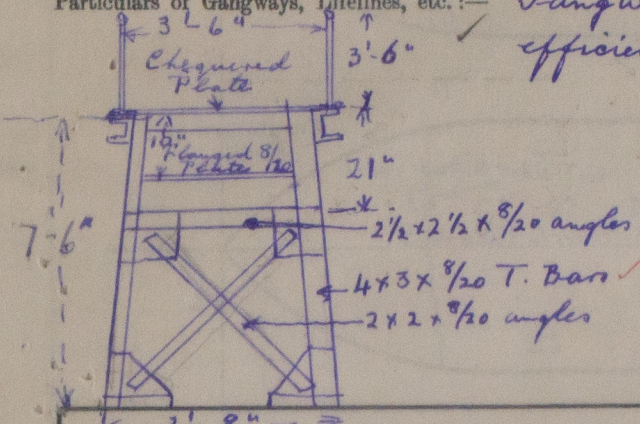 Particulars of Gangways, Lifelines, etc. :—
3'-6"
3'-6"
efficie
Chequered
Plate
Flanged 8/20
Plate
21"
7-6"
2½ x 2½ x 8/20 angles
4 x 3 x 8/20 T. Bars
2 x 2 x 8/20 angles